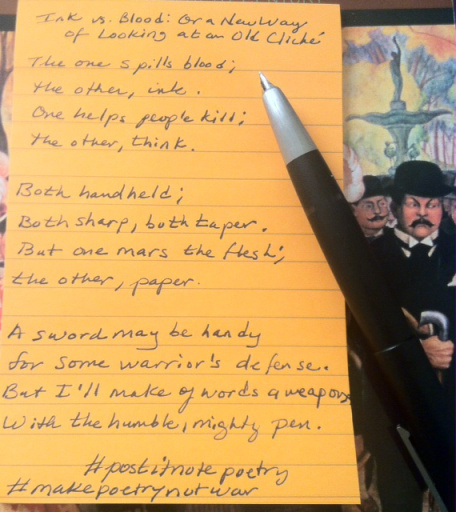 Ink vs. Blood: Or a New Way
of Looking at an Old Cliché
The one spills blood;
the other, ink.
One helps people kill;
the other, think.
Both handheld;
Both sharp, both taper.
But one mars the flesh;
the other, paper.
A sword may be handy
for some warrior's defense.
But I'll make of words a weapon
With the humble, mighty pen.
#postitnotepoetry
#makepoetrynotwar